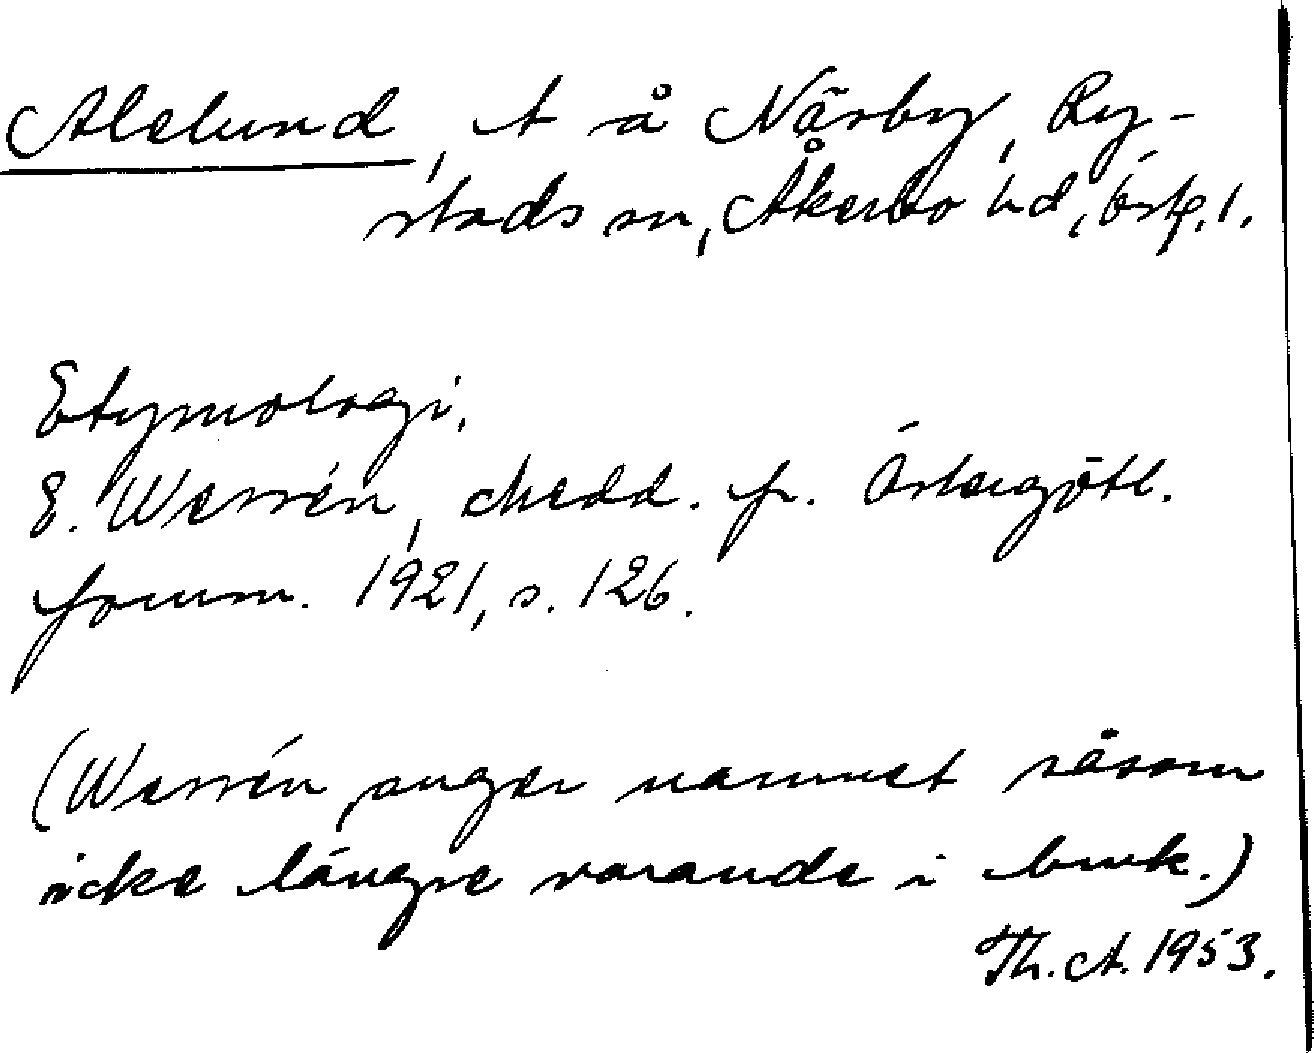 Alelund, t å Närby, Ry-
stads sn, Åkerbo hd, Östg. l.
Etymologi.
E. Wessén, Medd. fr. Östergötl.
fornm. 1921, s. 126.
(Wessén anger namnet såsom
icke längre varande i bruk.)
Th. A. 1953.